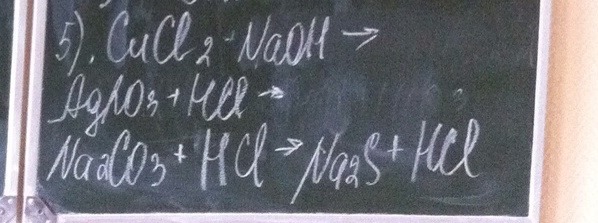 5). CuCl2 + NaOH →
AgNO3 + HCl →
Na2CO3 + HCl → Na2S + HCl